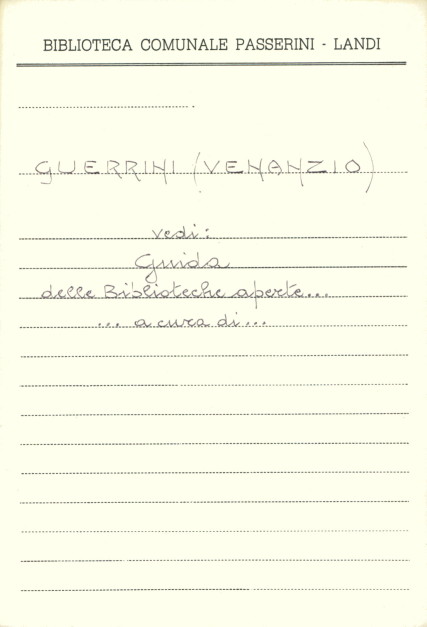 BIBLIOTECA COMUNALE PASSERINI - LANDI
GUERRINI (VENANZIO)
vedi:
Guida
delle Biblioteche aperte...
... a cura di...